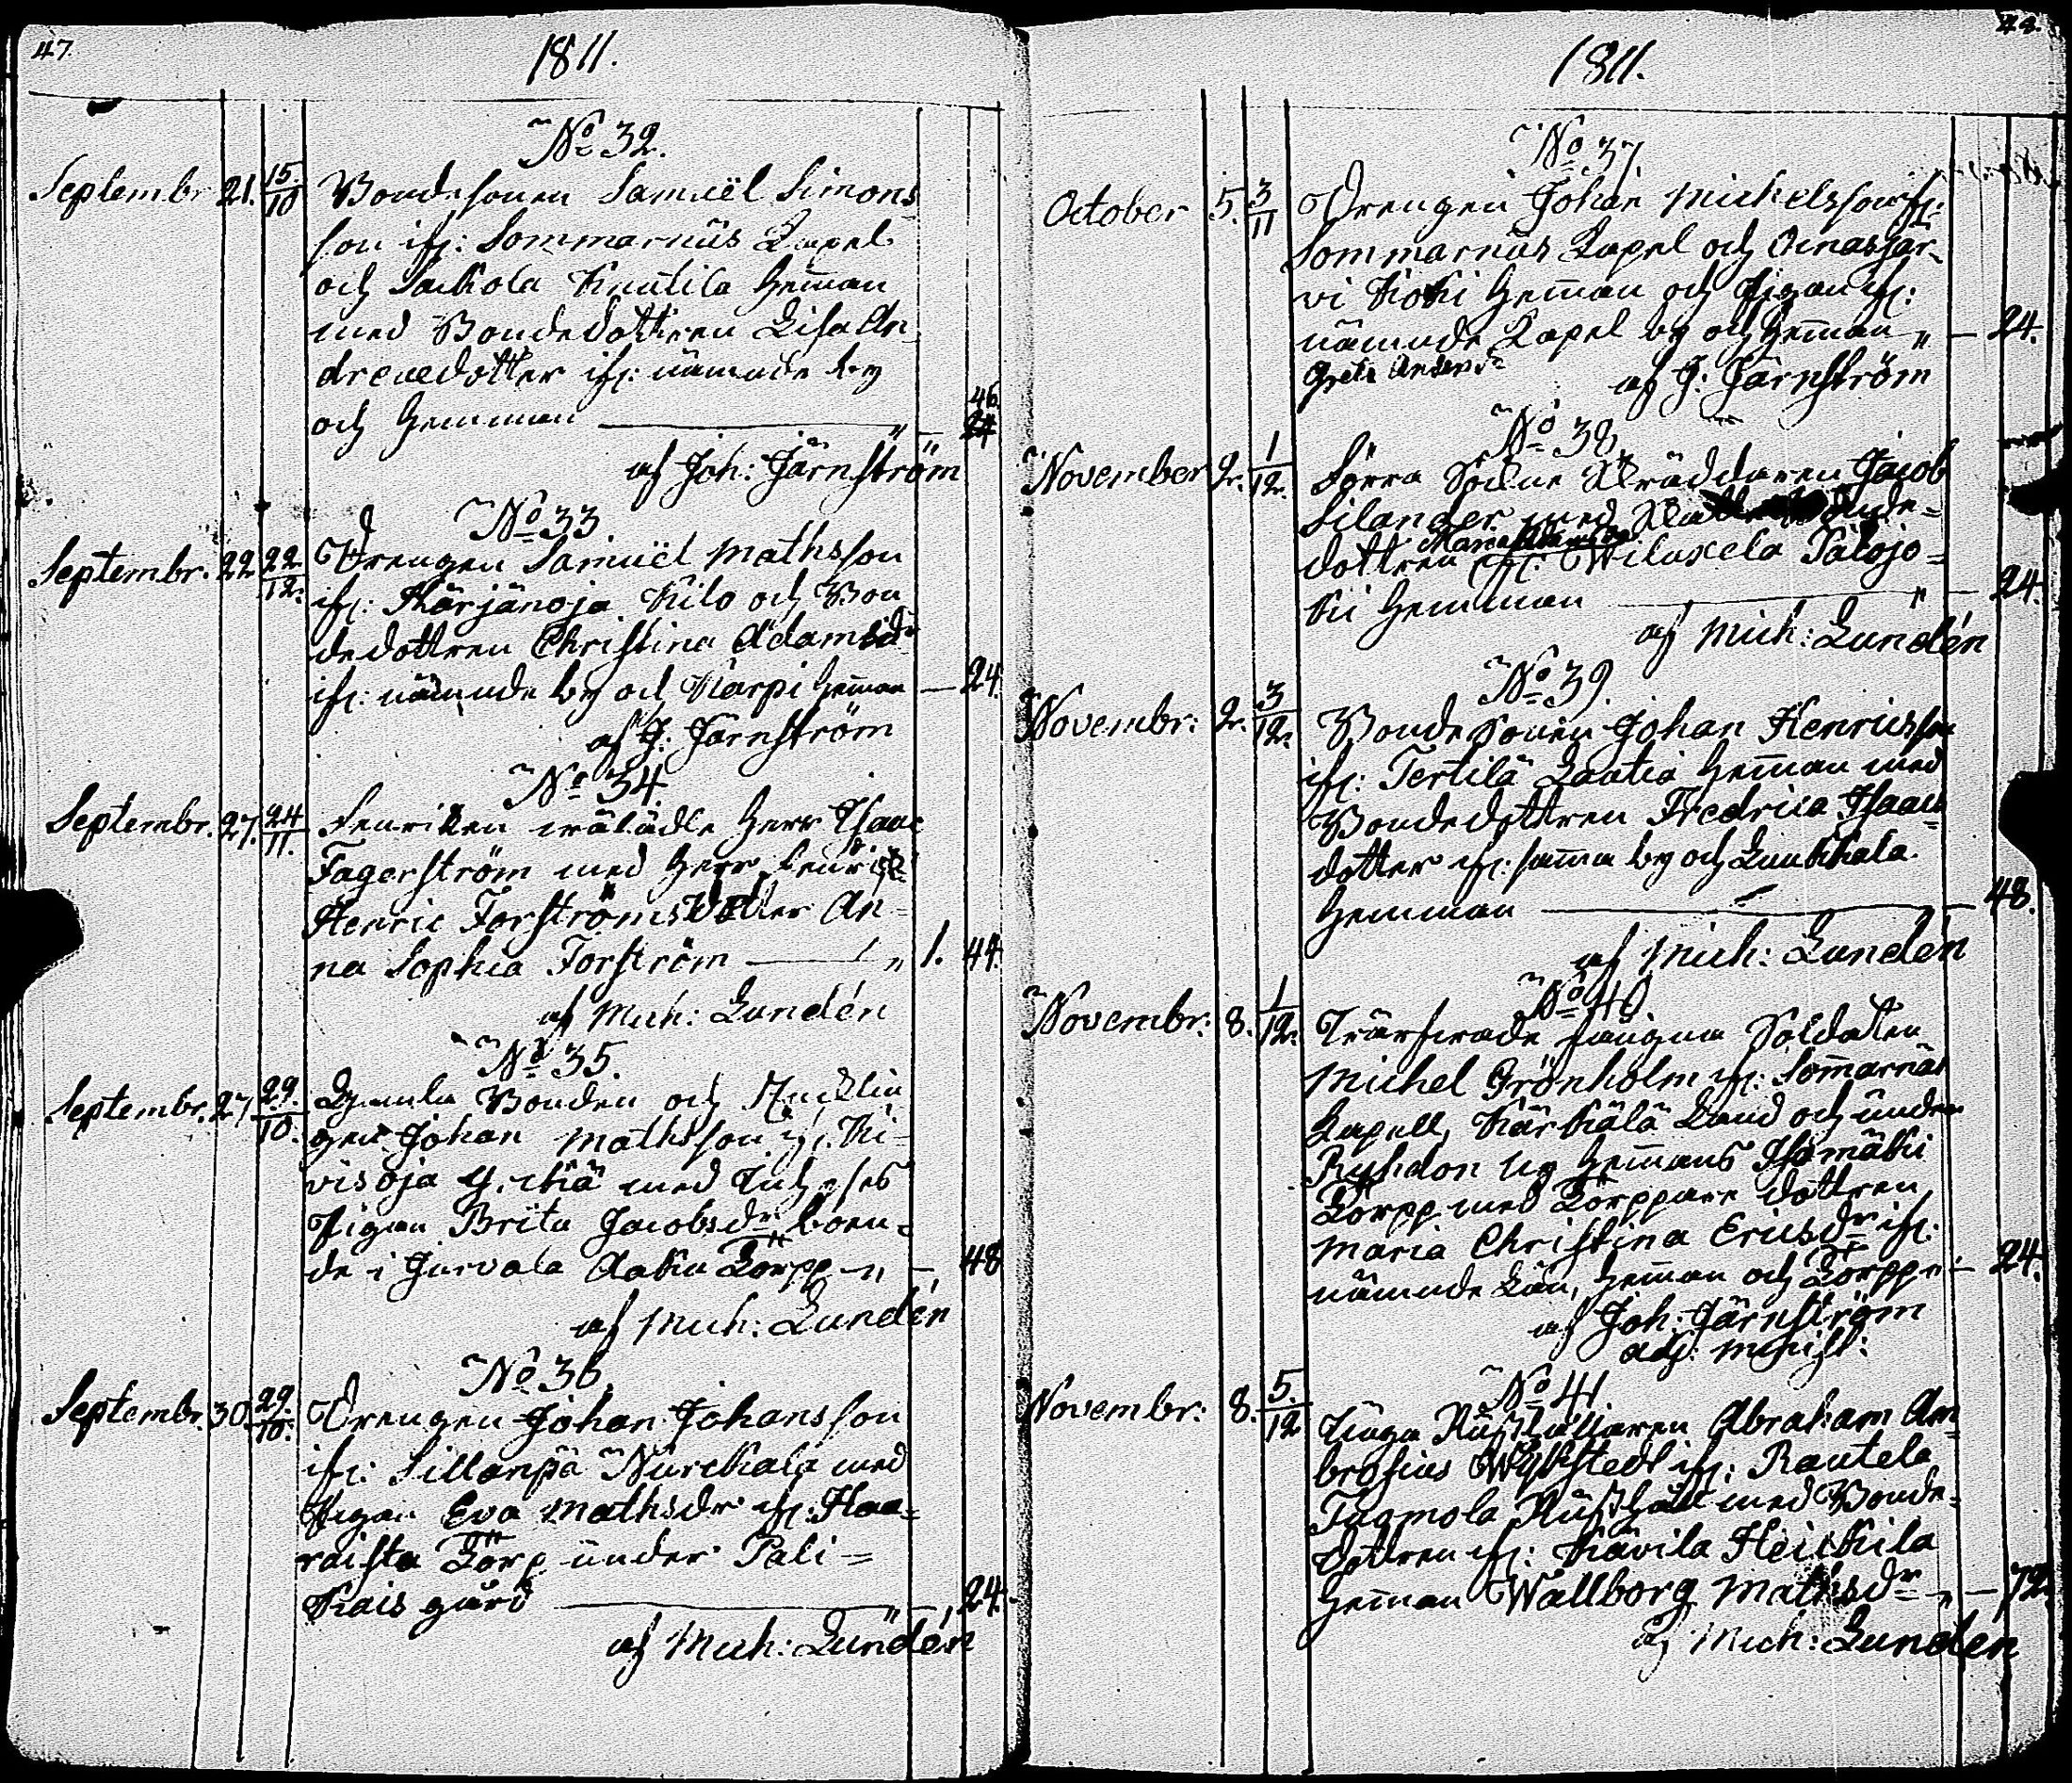 47.
1811.
No 32.
Septembr 21. 15/10 Bondesonen Samuël Simons
son ifr: Sommarnäs Capel
och Sackola Knutila Hemman
med Bondedottren Lisa An
drersdotter ifr: nämnde by
och Hemman — " — 46. 24
af Joh: Järnström
No 33
Septembr. 22 22/12. Drengen Samuël Mathsson
ifr: Härjänoja Kilo och Bon
dedottren Christina Adamsdr
ifr: nämnde by och Karpi Heman — 24.
af J: Järnström
No 34
Septembr. 27. 24/11. Fenriken wälädle Herr Isaac
Fagerström med Herr Fenrik
Henric Forströms Dotter An-
na Sophia Forström — " 1. 44.
af Mich: Lundén
No 35.
Septembr. 27 29./10. Gamla Bonden och Encklin
gen Johan Mathsson ifr. Ki-
visoja med
Pigan Brita Jacobsdr boen-
de i Jurvala Torpp " — 48
af Mich: Lundén
No 36.
Septembr. 30. 29./10. Drengen Johan Johansson
ifr: Sillanpä Nurckala med
Pigan Eva Mathsdr ifr: Haa-
raista Torp under Pali=
kais gård — " — 24.
af Mich: Lundén
48.
1811.
No 37
October 5. 3/11 Drengen Johan Michelsson ifr:
Sommarnäs Capel och Oinasjär-
vi Koki Heman och Pigan ifr:
nämnde Capel by och Heman " — 24.
Greta Andersdr
af J: Järnström
No 38.
November 2. 1/12. Förra Sockne Skräddaren Jacob
Silander med
dottren ifr: Wiluxela Palojo=
ki Hemman — " — 24.
af Mich: Lundén
No 39.
Novembr: 2. 3/12. Bondesonen Johan Henricsson
ifr: Tertilä Lautia Heman med
Bondedottren Fredrica Isaacs
dotter ifr: samma by och Luukkala
Hemman — 48.
af Mich: Lundén
No 40
Novembr: 8. 1/12. fångna Soldaten
Michel Grönholm ifr: Somarnäs
Capell, Kärkälä Lund och under
by Hemans Isomäki
Torpp med Torppare dottren
Maria Christina Ericsdr ifr:
nämnde Heman och Torpp " — 24.
af Joh: Järnström
adj: Minist:
No 41
Novembr: 8. 5./12 Unga Rusthållaren Abraham Am-
brosius ifr: Rautela
Tagmola Rusthåll med Bonde-
Dottren ifr: Kävila Heickila
Heman Wallborg Mathsdr " — 72.
af Mich: Lundén